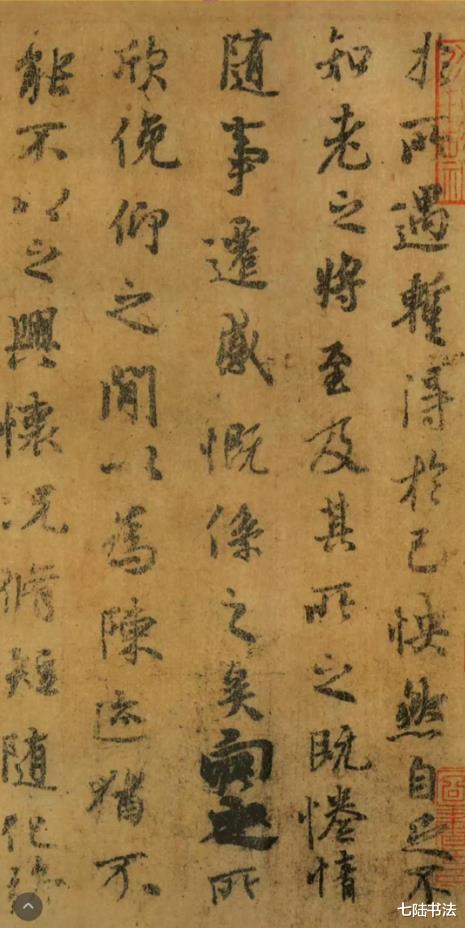 於所遇暫得於己怏然自足不
知老之將至及其所之既惓情
随事遷感慨係之矣向之所
欣俛仰之閒以為陳迹猶不
能不以之興懷況脩短随化終
七陆书法